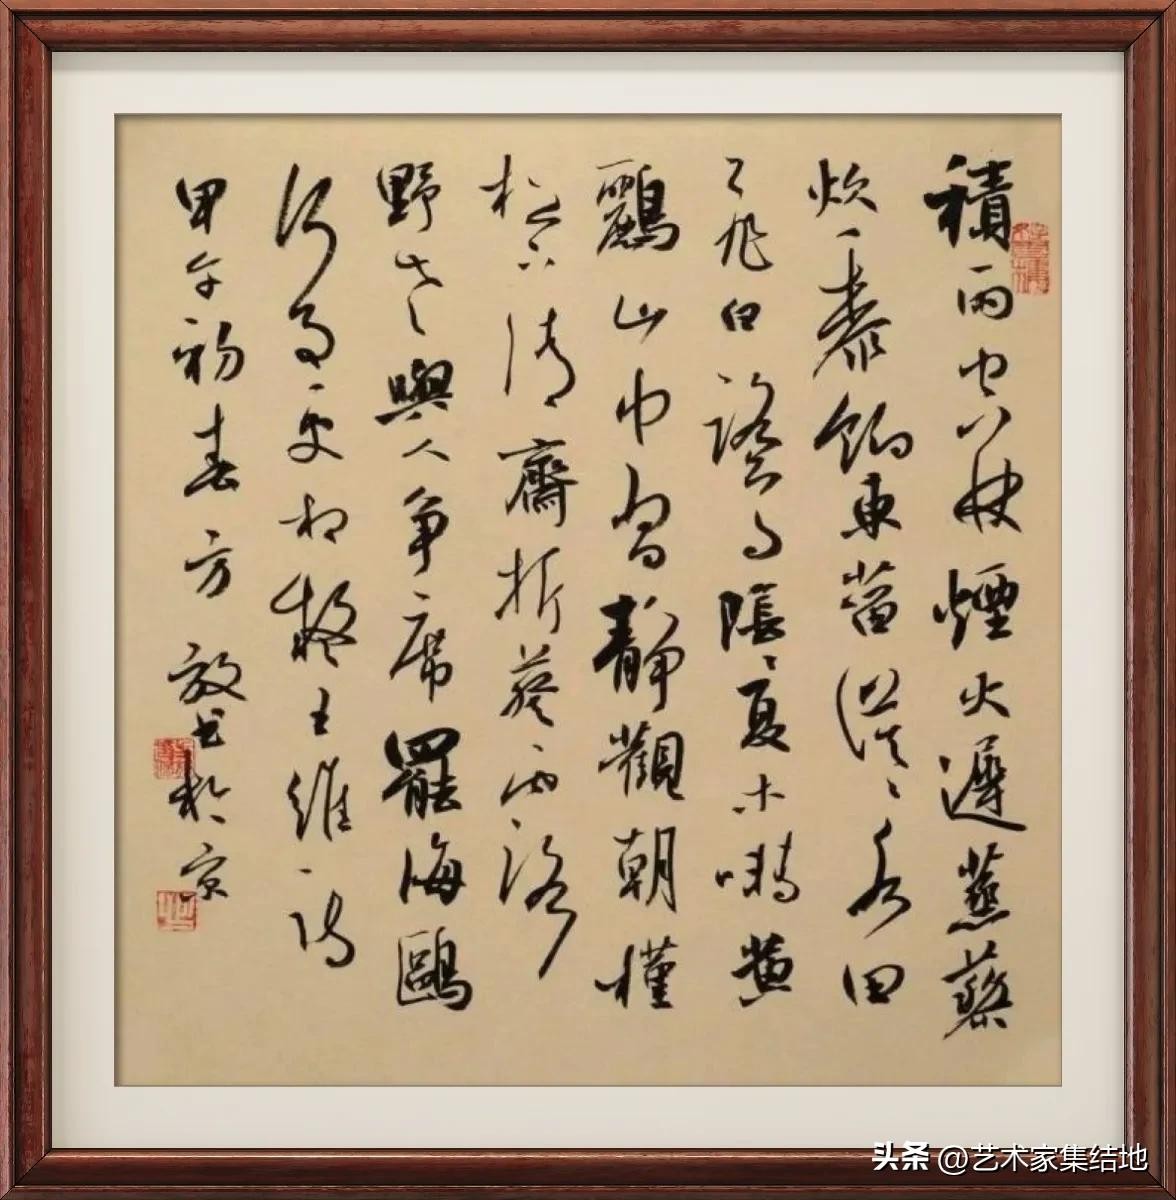 積雨空林煙火遲蒸藜
炊黍餉東菑漠々水田
飛白鷺陰々夏木囀黃
鸝山中習靜觀朝槿
松下清齋折葵露
野老與人爭席罷海鷗
何事更相疑王維詩
甲午初春方書於京
头条 @艺术家集结地